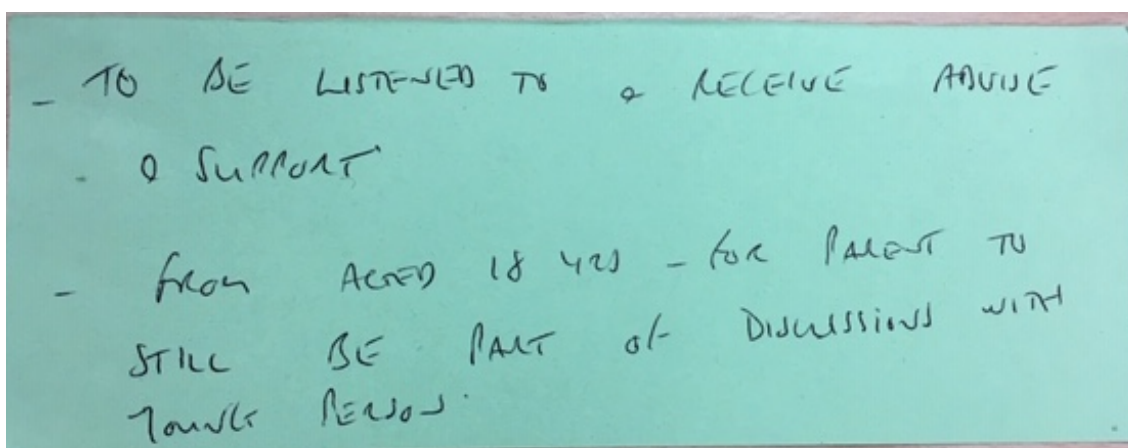 - TO BE LISTENED TO & RECEIVE ADVISE
- & SUPPORT
- FROM AGED 18 YRS - FOR PARENT TO
STILL BE PART OF DISCUSSIONS WITH
YOUNG PERSON.